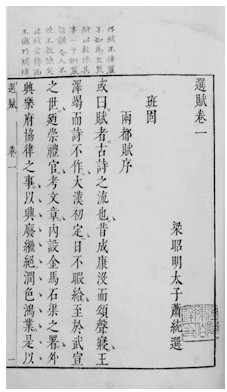 選賦卷一
梁昭明太子蕭統選
班固
兩都賦序
或曰賦者古詩之流也昔成康沒而頌聲寢王
澤竭而詩不作大漢初定日不暇給至於武宣
之世廼崇禮官考文章内設金馬石渠之署外
興樂府協律之事以興廢繼絕潤色鴻業是以
選賦 卷一 一